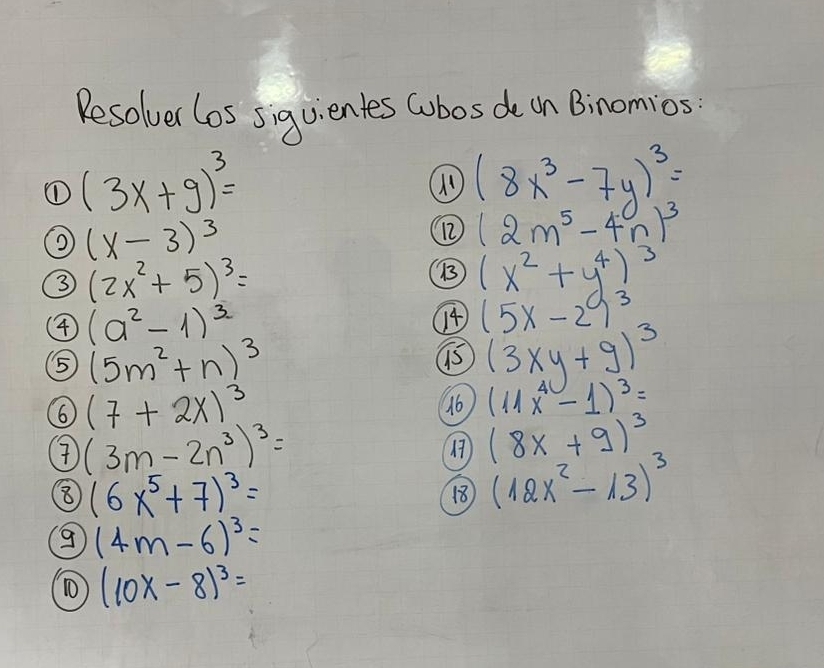 Resolver los siguientes Cubos de un Binomios:
① (3x+9)³=
② (x-3)³
③ (2x²+5)³=
④ (a²-1)³
⑤ (5m²+n)³
⑥ (7+2x)³
⑦ (3m-2n³)³=
⑧ (6x⁵+7)³=
⑨ (4m-6)³=
⑩ (10x-8)³=
⑪ (8x³-7y)³=
⑫ (2m⁵-4n)³
⑬ (x²+y⁴)³
⑭ (5x-2)³
⑮ (3xy+9)³
⑯ (11x⁴-1)³=
⑰ (8x+9)³
⑱ (12x²-13)³